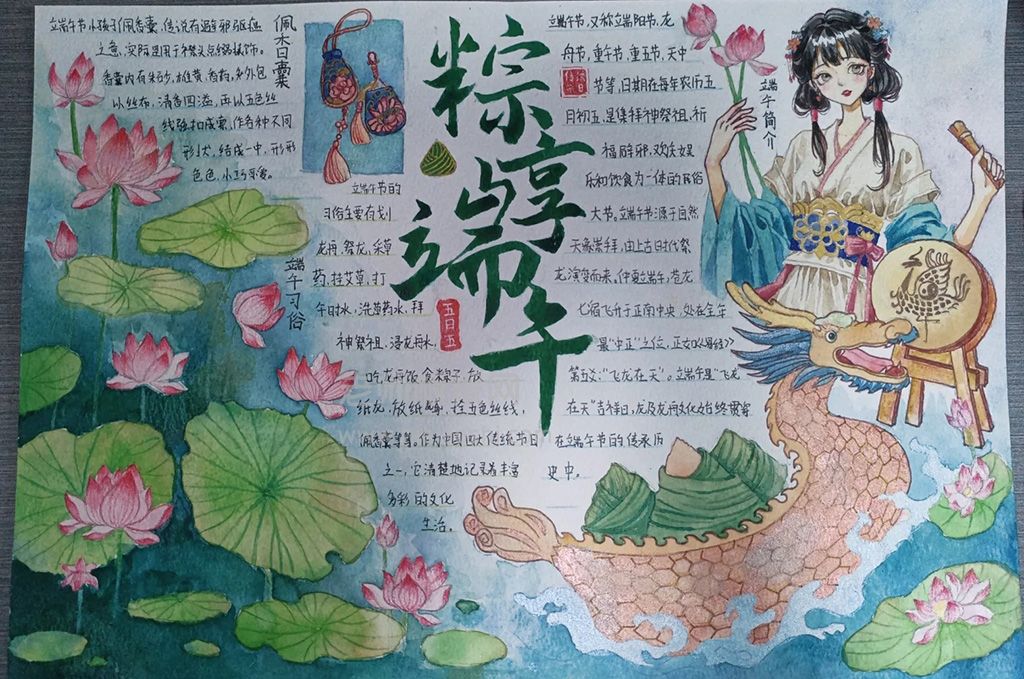 粽享端午
五月五
佩香囊
端午节小孩子佩香囊,传说有避邪驱瘟
之意,实际是用于襟头点缀装饰。
香囊内有朱砂,雄黄,香药,外包
以丝布,清香四溢,再以五色丝
线弦扣成索,作各种不同
形状,结成一串,形形
色色,小巧可爱。
端午习俗
端午节的
习俗主要有划
龙舟,祭龙,采草
药,挂艾草,打
午时水,洗草药水,拜
神祭祖,浸龙舟水,
吃龙舟饭,食粽子,放
纸龙,放纸鸢,拴五色丝线,
佩香囊等等。作为中国四大传统节日
之一,它清楚地记录着丰富
多彩的文化
生活。
端午简介
端午节,又称端阳节,龙
舟节,重午节,重五节,天中
节等,日期在每年农历五
月初五,是集拜神祭祖,祈
福辟邪,欢庆娱
乐和饮食为一体的民俗
大节。端午节源于自然
天象崇拜,由上古时代祭
龙演变而来,仲夏端午,苍龙
七宿飞升于正南中央,处在全年
最"中正"之位,正如《易经》
第五爻:"飞龙在天"。端午是"飞龙
在天"吉祥日,龙及龙舟文化始终贯穿
在端午节的传承历
史中。